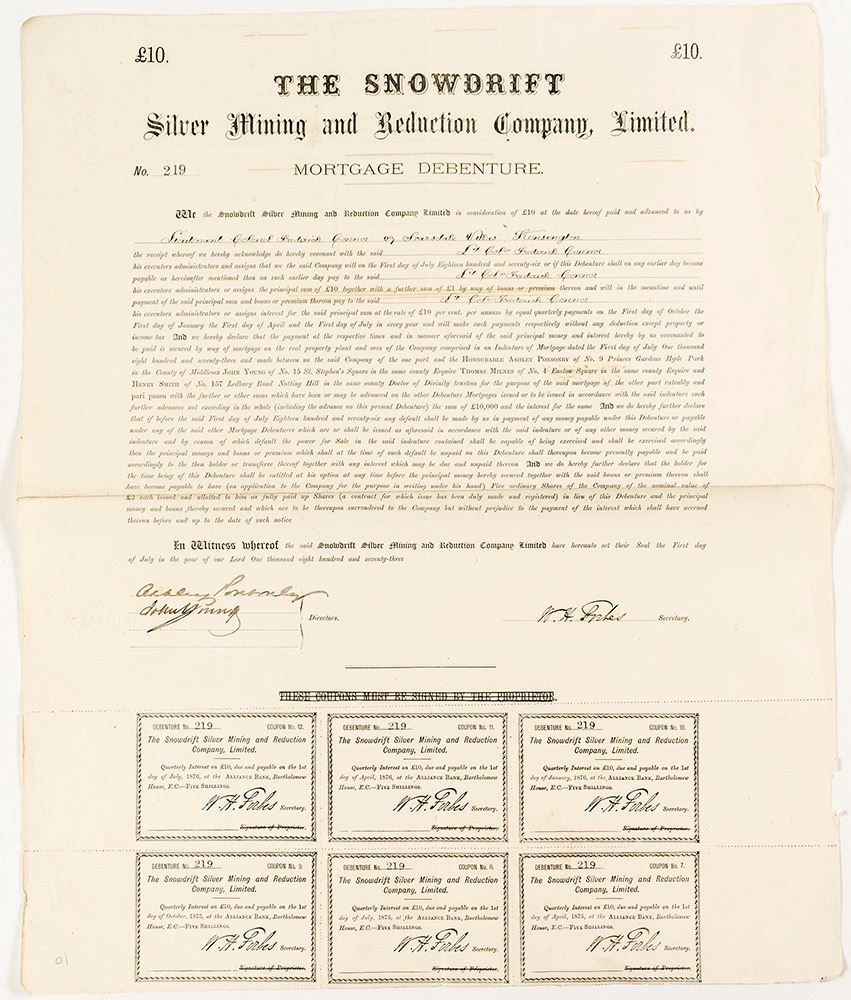 £10. £10.
THE SNOWDRIFT
Silver Mining and Reduction Company, Limited.
No. 219 MORTGAGE DEBENTURE.
We the Snowdrift Silver Mining and Reduction Company Limited in consideration of £10 at the date hereof paid and advanced to us by
Lieutenant Colonel Frederick Connor of Scarsdale Villas Kensington
the receipt whereof we hereby acknowledge do hereby covenant with the said Lt Coln Frederick Connor
his executors administrators and assigns that we the said Company will on the First day of July Eighteen hundred and seventy-six or if this Debenture shall on any earlier day become
payable as hereinafter mentioned then on such earlier day pay to the said Lt Coln Frederick Connor
his executors administrators or assigns the principal sum of £10 together with a further sum of £1 by way of bonus or premium thereon and will in the meantime and until
payment of the said principal sum and bonus or premium thereon pay to the said Lt Coln Frederick Connor
his executors administrators or assigns interest for the said principal sum at the rate of £10 per cent. per annum by equal quarterly payments on the First day of October the
First day of January the First day of April and the First day of July in every year and will make such payments respectively without any deduction except property or
income tax And we hereby declare that the payment at the respective times and in manner aforesaid of the said principal money and interest hereby by us covenanted to
be paid is secured by way of mortgage on the real property plant and area of the Company comprised in an Indenture of Mortgage dated the First day of July One thousand
eight hundred and seventy-three and made between us the said Company of the one part and the HONOURABLE ASHLEY PONSONBY of No. 9 Princes Gardens Hyde Park
in the County of Middlesex JOHN YOUNG of No. 15 St. Stephen's Square in the same county Esquire THOMAS MILNES of No. 4 Euston Square in the same county Esquire and
HENRY SMITH of No. 157 Ledbury Road Notting Hill in the same county Doctor of Divinity trustees for the purpose of the said mortgage of the other part rateably and
pari passu with the further or other sums which have been or may be advanced on the other Debenture Mortgages issued or to be issued in accordance with the said indenture such
further advances not exceeding in the whole (including the advance on this present Debenture) the sum of £10,000 and the interest for the same And we do hereby further declare
that if before the said First day of July Eighteen hundred and seventy-six any default shall be made by us in payment of any money payable under this Debenture or payable
under any of the said other Mortgage Debentures which are or shall be issued as aforesaid in accordance with the said indenture or of any other money secured by the said
indenture and by reason of which default the power for Sale in the said indenture contained shall be capable of being exercised and shall be exercised accordingly
then the principal moneys and bonus or premiums which shall at the time of such default be unpaid on this Debenture shall thereupon become presently payable and be paid
accordingly to the then holder or transferee thereof together with any interest which may be due and unpaid thereon And we do hereby further declare that the holder for
the time being of this Debenture shall be entitled at his option at any time before the principal money hereby secured together with the said bonus or premium thereon shall
have become payable to have (on application to the Company for the purpose in writing under his hand) Five ordinary Shares of the Company of the nominal value of
£2 each issued and allotted to him as fully paid up Shares (a contract for which issue has been duly made and registered) in lieu of this Debenture and the principal
money and bonus thereby secured and which are to be thereupon surrendered to the Company but without prejudice to the payment of the interest which shall have accrued
thereon before and up to the date of such notice
In Witness whereof the said Snowdrift Silver Mining and Reduction Company Limited have hereunto set their Seal the First day
of July in the year of our Lord One thousand eight hundred and seventy-three
Ashley Ponsonby
John Young
Directors.
W. H. Forbes Secretary.
THESE COUPONS MUST BE SIGNED BY THE PROPRIETOR.
DEBENTURE No. 219 COUPON No. 12.
The Snowdrift Silver Mining and Reduction
Company, Limited.
Quarterly Interest on £10, due and payable on the 1st
day of July, 1876, at the ALLIANCE BANK, Bartholomew
House, E.C.—FIVE SHILLINGS.
W. H. Forbes Secretary.
Signature of Proprietor.
DEBENTURE No. 219 COUPON No. 11.
The Snowdrift Silver Mining and Reduction
Company, Limited.
Quarterly Interest on £10, due and payable on the 1st
day of April, 1876, at the ALLIANCE BANK, Bartholomew
House, E.C.—FIVE SHILLINGS.
W. H. Forbes Secretary.
Signature of Proprietor.
DEBENTURE No. 219 COUPON No. 10.
The Snowdrift Silver Mining and Reduction
Company, Limited.
Quarterly Interest on £10, due and payable on the 1st
day of January, 1876, at the ALLIANCE BANK, Bartholomew
House, E.C.—FIVE SHILLINGS.
W. H. Forbes Secretary.
Signature of Proprietor.
DEBENTURE No. 219 COUPON No. 9.
The Snowdrift Silver Mining and Reduction
Company, Limited.
Quarterly Interest on £10, due and payable on the 1st
day of October, 1875, at the ALLIANCE BANK, Bartholomew
House, E.C.—FIVE SHILLINGS.
W. H. Forbes Secretary.
Signature of Proprietor.
DEBENTURE No. 219 COUPON No. 8.
The Snowdrift Silver Mining and Reduction
Company, Limited.
Quarterly Interest on £10, due and payable on the 1st
day of July, 1875, at the ALLIANCE BANK, Bartholomew
House, E.C.—FIVE SHILLINGS.
W. H. Forbes Secretary.
Signature of Proprietor.
DEBENTURE No. 219 COUPON No. 7.
The Snowdrift Silver Mining and Reduction
Company, Limited.
Quarterly Interest on £10, due and payable on the 1st
day of April, 1875, at the ALLIANCE BANK, Bartholomew
House, E.C.—FIVE SHILLINGS.
W. H. Forbes Secretary.
Signature of Proprietor.